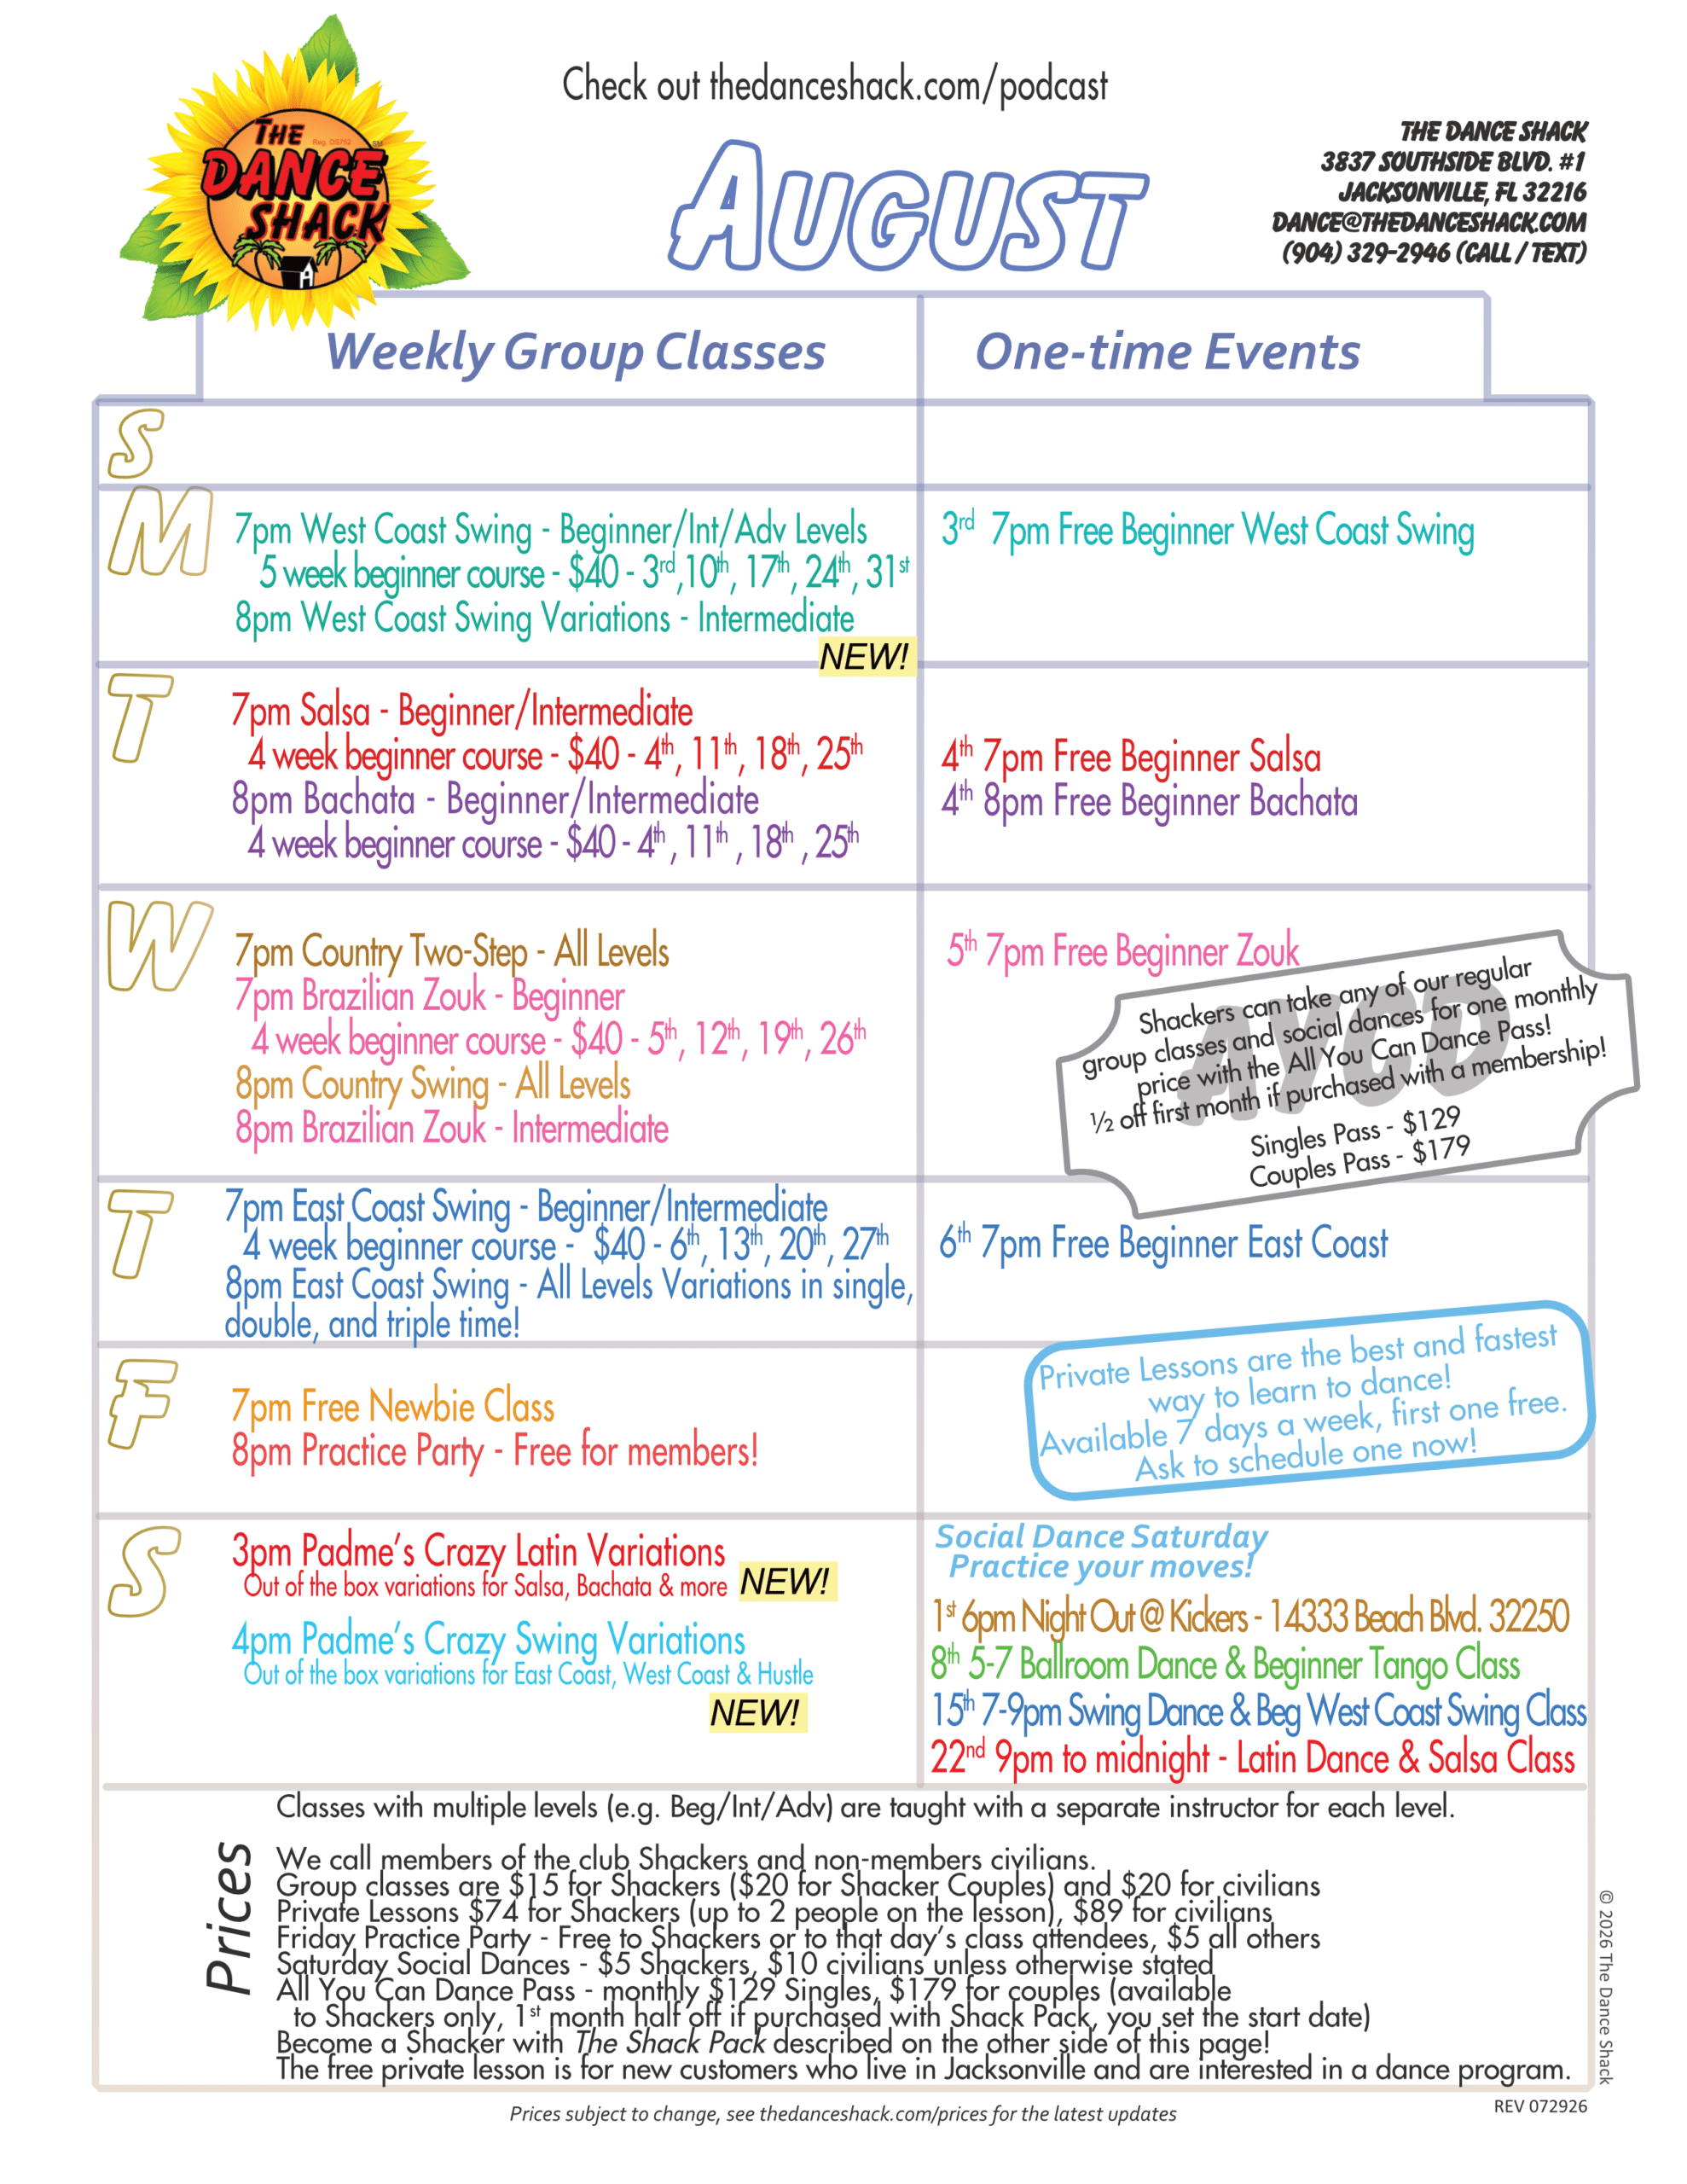 Check out thedanceshack.com/podcast
THE
Reg. DS752
SM
DANCE
SHACK
AUGUST
THE DANCE SHACK
3837 SOUTHSIDE BLVD. #1
JACKSONVILLE, FL 32216
DANCE@THEDANCESHACK.COM
(904) 329-2946 (CALL / TEXT)
Weekly Group Classes
One-time Events
S
M
7pm West Coast Swing - Beginner/Int/Adv Levels
5 week beginner course - $40 - 3rd,10th, 17th, 24th, 31st
8pm West Coast Swing Variations - Intermediate
NEW!
3rd 7pm Free Beginner West Coast Swing
T
7pm Salsa - Beginner/Intermediate
4 week beginner course - $40 - 4th, 11th, 18th, 25th
8pm Bachata - Beginner/Intermediate
4 week beginner course - $40 - 4th , 11th , 18th , 25th
4th 7pm Free Beginner Salsa
4th 8pm Free Beginner Bachata
W
7pm Country Two-Step - All Levels
7pm Brazilian Zouk - Beginner
4 week beginner course - $40 - 5th, 12th, 19th, 26th
8pm Country Swing - All Levels
8pm Brazilian Zouk - Intermediate
5th 7pm Free Beginner Zouk
AYCD
Shackers can take any of our regular
group classes and social dances for one monthly
price with the All You Can Dance Pass!
½ off first month if purchased with a membership!
Singles Pass - $129
Couples Pass - $179
T
7pm East Coast Swing - Beginner/Intermediate
4 week beginner course - $40 - 6th, 13th, 20th, 27th
8pm East Coast Swing - All Levels Variations in single,
double, and triple time!
6th 7pm Free Beginner East Coast
F
7pm Free Newbie Class
8pm Practice Party - Free for members!
Private Lessons are the best and fastest
way to learn to dance!
Available 7 days a week, first one free.
Ask to schedule one now!
S
3pm Padme's Crazy Latin Variations
Out of the box variations for Salsa, Bachata & more NEW!
4pm Padme's Crazy Swing Variations
Out of the box variations for East Coast, West Coast & Hustle
NEW!
Social Dance Saturday
Practice your moves!
1st 6pm Night Out @ Kickers - 14333 Beach Blvd. 32250
8th 5-7 Ballroom Dance & Beginner Tango Class
15th 7-9pm Swing Dance & Beg West Coast Swing Class
22nd 9pm to midnight - Latin Dance & Salsa Class
Prices
Classes with multiple levels (e.g. Beg/Int/Adv) are taught with a separate instructor for each level.
We call members of the club Shackers and non-members civilians.
Group classes are $15 for Shackers ($20 for Shacker Couples) and $20 for civilians
Private Lessons $74 for Shackers (up to 2 people on the lesson), $89 for civilians
Friday Practice Party - Free to Shackers or to that day's class attendees, $5 all others
Saturday Social Dances - $5 Shackers, $10 civilians unless otherwise stated
All You Can Dance Pass - monthly $129 Singles, $179 for couples (available
to Shackers only, 1st month half off if purchased with Shack Pack, you set the start date)
Become a Shacker with The Shack Pack described on the other side of this page!
The free private lesson is for new customers who live in Jacksonville and are interested in a dance program.
© 2026 The Dance Shack
Prices subject to change, see thedanceshack.com/prices for the latest updates
REV 072926